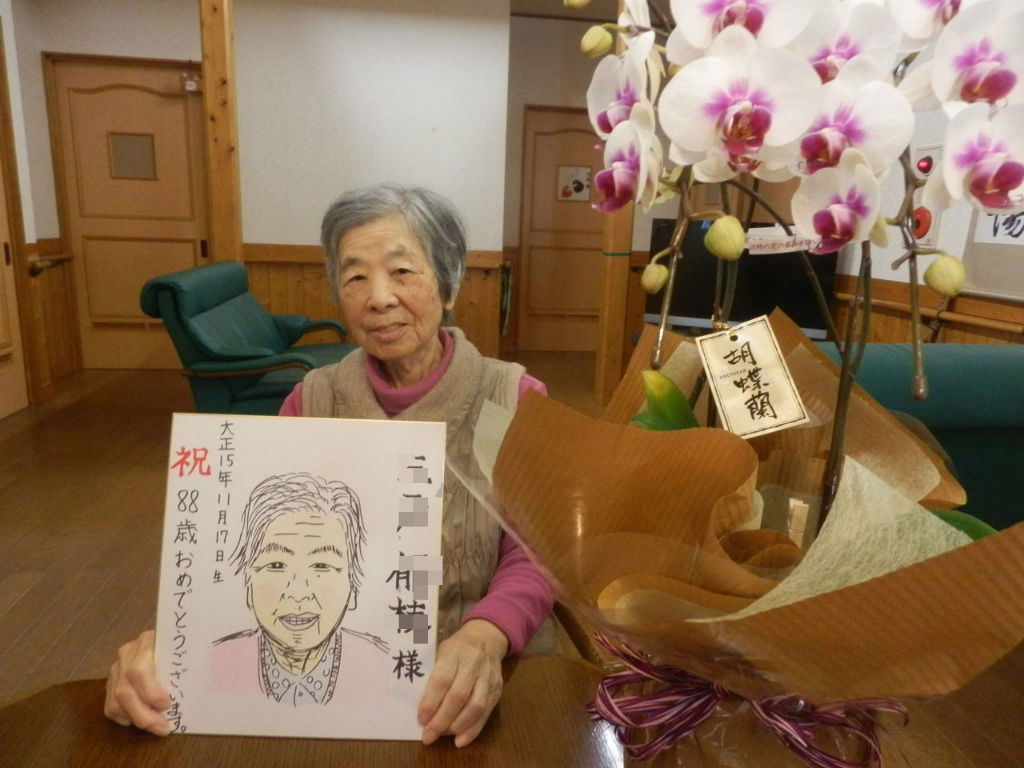 様
大正15年11月17日生
祝
88歳おめでとうございます。
胡蝶蘭